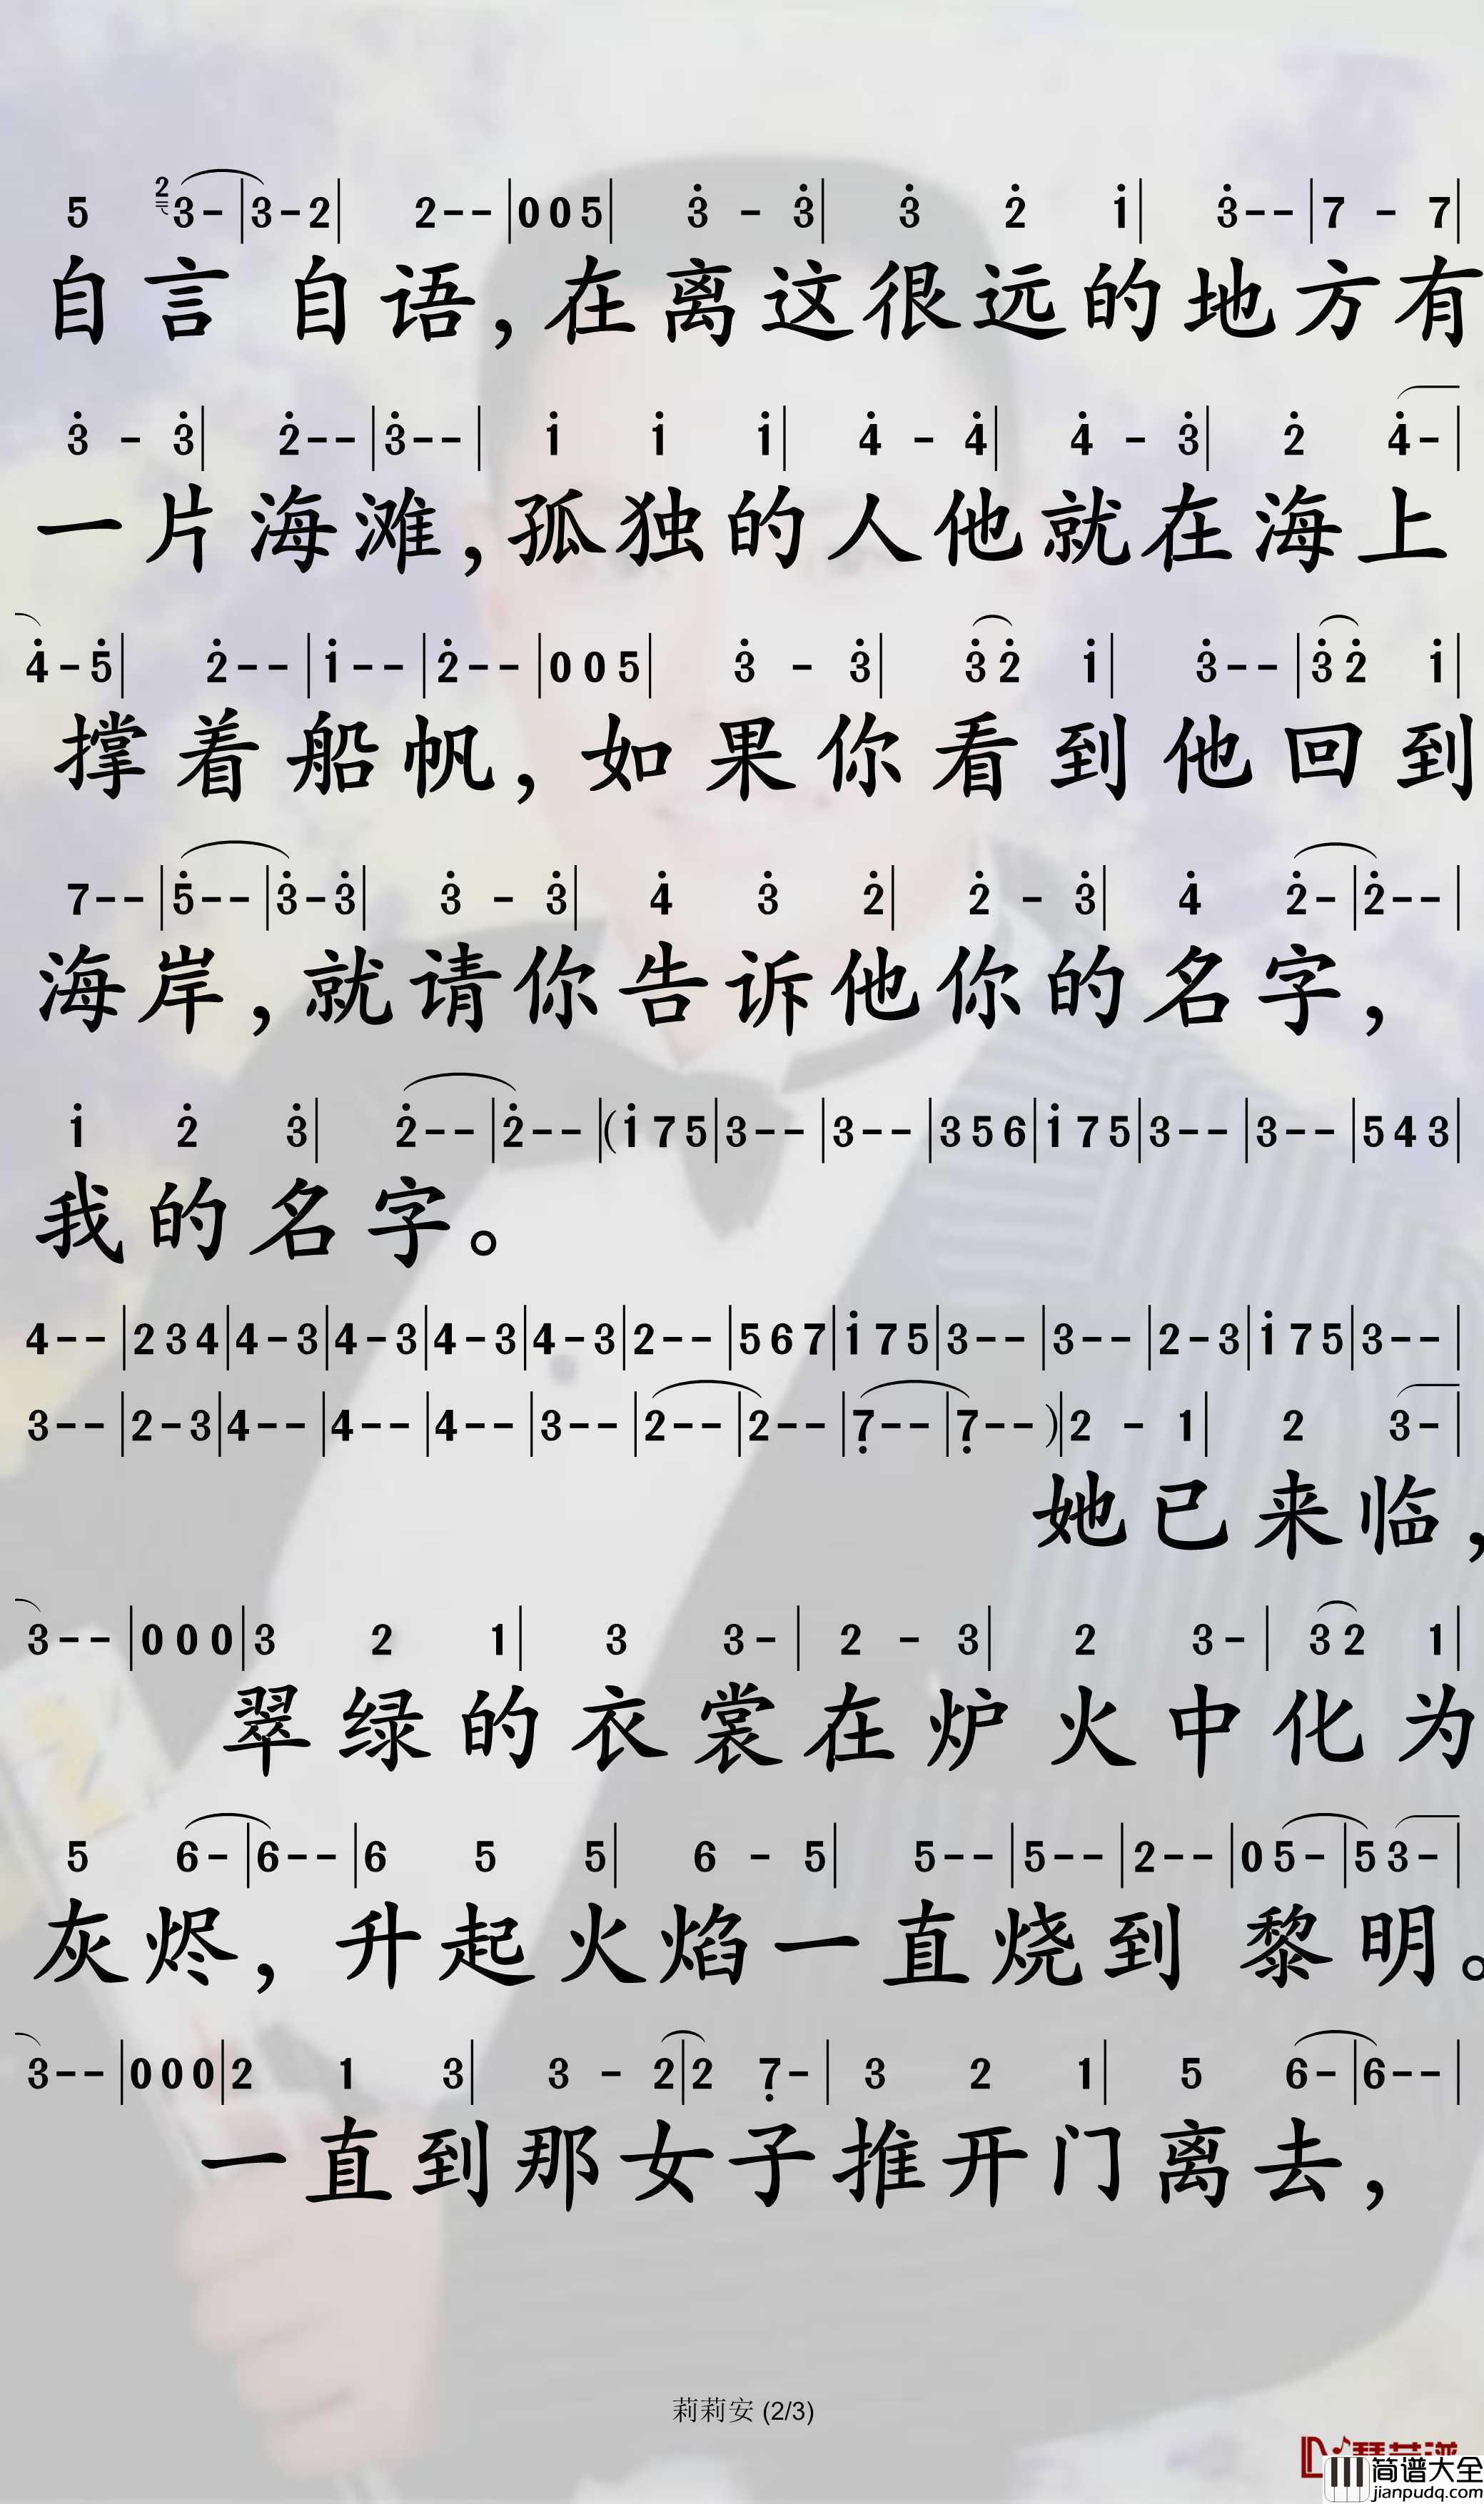 5 2 3-|3-2| 2--|005| 3̇ - 3̇| 3̇ 2̇ 1̇| 3̇--|7 - 7|
自言 自语,在离这很远的地方有
3̇ - 3̇| 2̇--|3̇--| 1̇ 1̇ 1̇| 4̇ - 4̇| 4̇ - 3̇| 2̇ 4̇-|
一片海滩,孤独的人他就在海上
4̇-5̇| 2̇--|1̇--|2̇--|005| 3̇ - 3̇| 3̇2̇ 1̇| 3̇--|3̇2̇ 1̇|
撑着船帆,如果你看到他回到
7--|5̇--|3̇-3̇| 3̇ - 3̇| 4̇ 3̇ 2̇| 2̇ - 3̇| 4̇ 2̇-|2̇--|
海岸,就请你告诉他你的名字,
1̇ 2̇ 3̇| 2̇--|2̇--|(1̇75|3--|3--|356|1̇75|3--|3--|543|
我的名字。
4--|234|4-3|4-3|4-3|4-3|2--|567|1̇75|3--|3--|2-3|1̇75|3--|
3--|2-3|4--|4--|4--|3--|2--|2--|7̣--|7̣--)|2 - 1| 2 3-|
她已来临,
3--|000|3 2 1| 3 3-| 2 - 3| 2 3-| 32 1|
翠绿的衣裳在炉火中化为
5 6-|6--|6 5 5| 6 - 5| 5--|5--|2--|05-|53-|
灰烬,升起火焰一直烧到 黎明。
3--|000|2 1 3| 3 - 2|2 7̣-| 3 2 1| 5 6-|6--|
一直到那女子推开门离去,
莉莉安 (2/3)
简谱大全
jianpudq.com